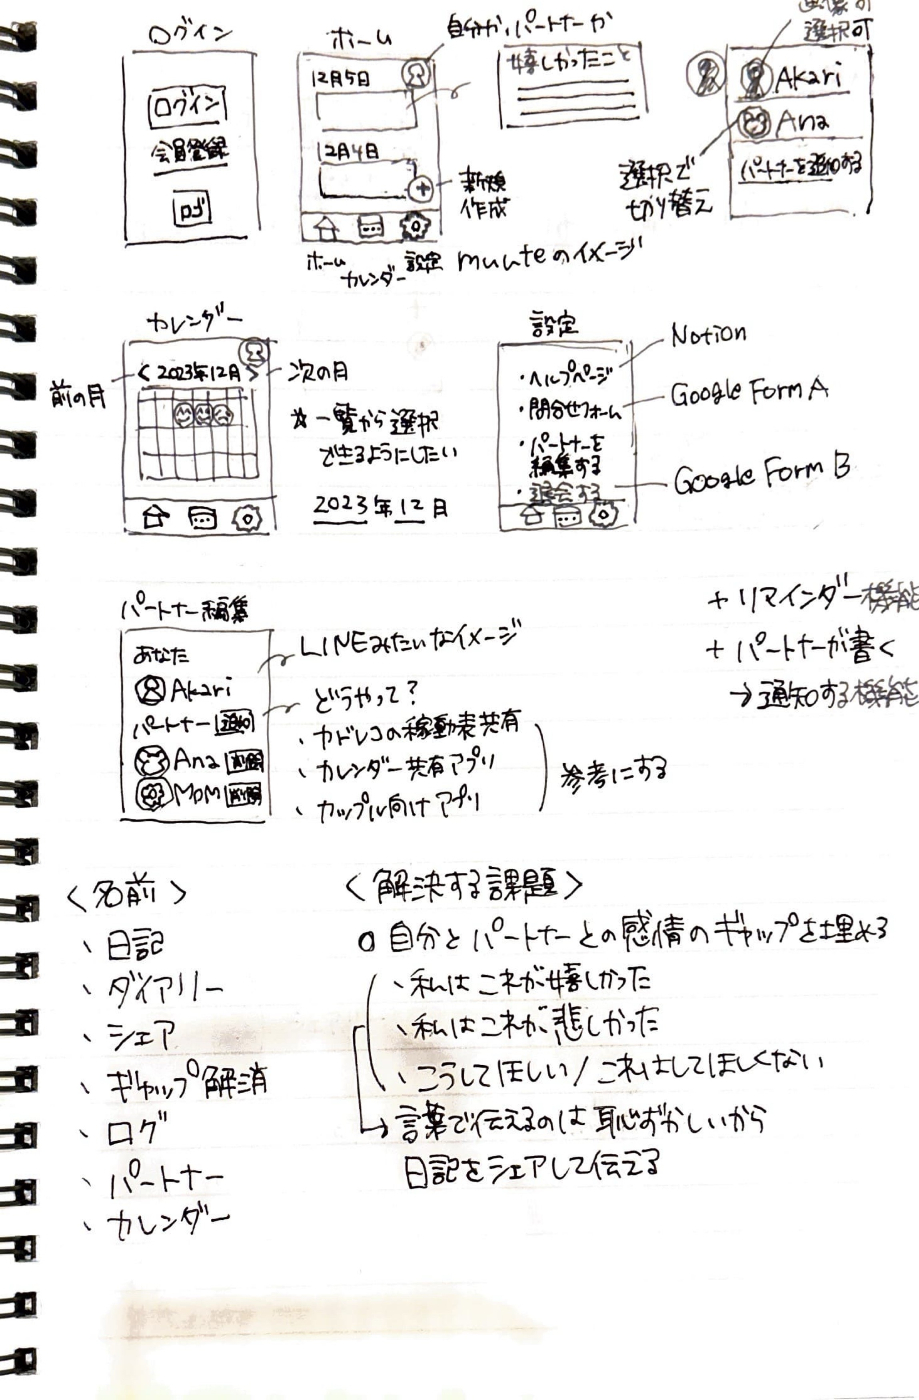 ログイン
ログイン
会員登録
ロゴ
ホーム
自分か、パートナーか
12月5日
12月4日
嬉しかったこと
新規
作成
ホーム
カレンダー
設定
muuteのイメージ
選択可
Akari
Ana
パートナーを追加する
選択で
切り替え
カレンダー
前の月
< 2023年12月 >
次の月
☆一覧から選択
できるようにしたい
2023年12月
設定
・ヘルプページ
・問合せフォーム
・パートナーを
編集する
・退会する
Notion
Google Form A
Google Form B
パートナー編集
あなた
Akari
パートナー 追加
Ana 削除
Mom 削除
LINEみたいなイメージ
どうやって?
・カドレコの稼動表共有
・カレンダー共有アプリ
・カップル向けアプリ
参考にする
+ リマインダー機能
+ パートナーが書く
→通知する機能
<名前>
、日記
、ダイアリー
、シェア
、ギャップ解消
、ログ
、パートナー
、カレンダー
<解決する課題>
○ 自分とパートナーとの感情のギャップを埋める
、私はこれが嬉しかった
、私はこれが悲しかった
、こうしてほしい/これはしてほしくない
→ 言葉で伝えるのは恥ずかしいから
日記をシェアして伝える